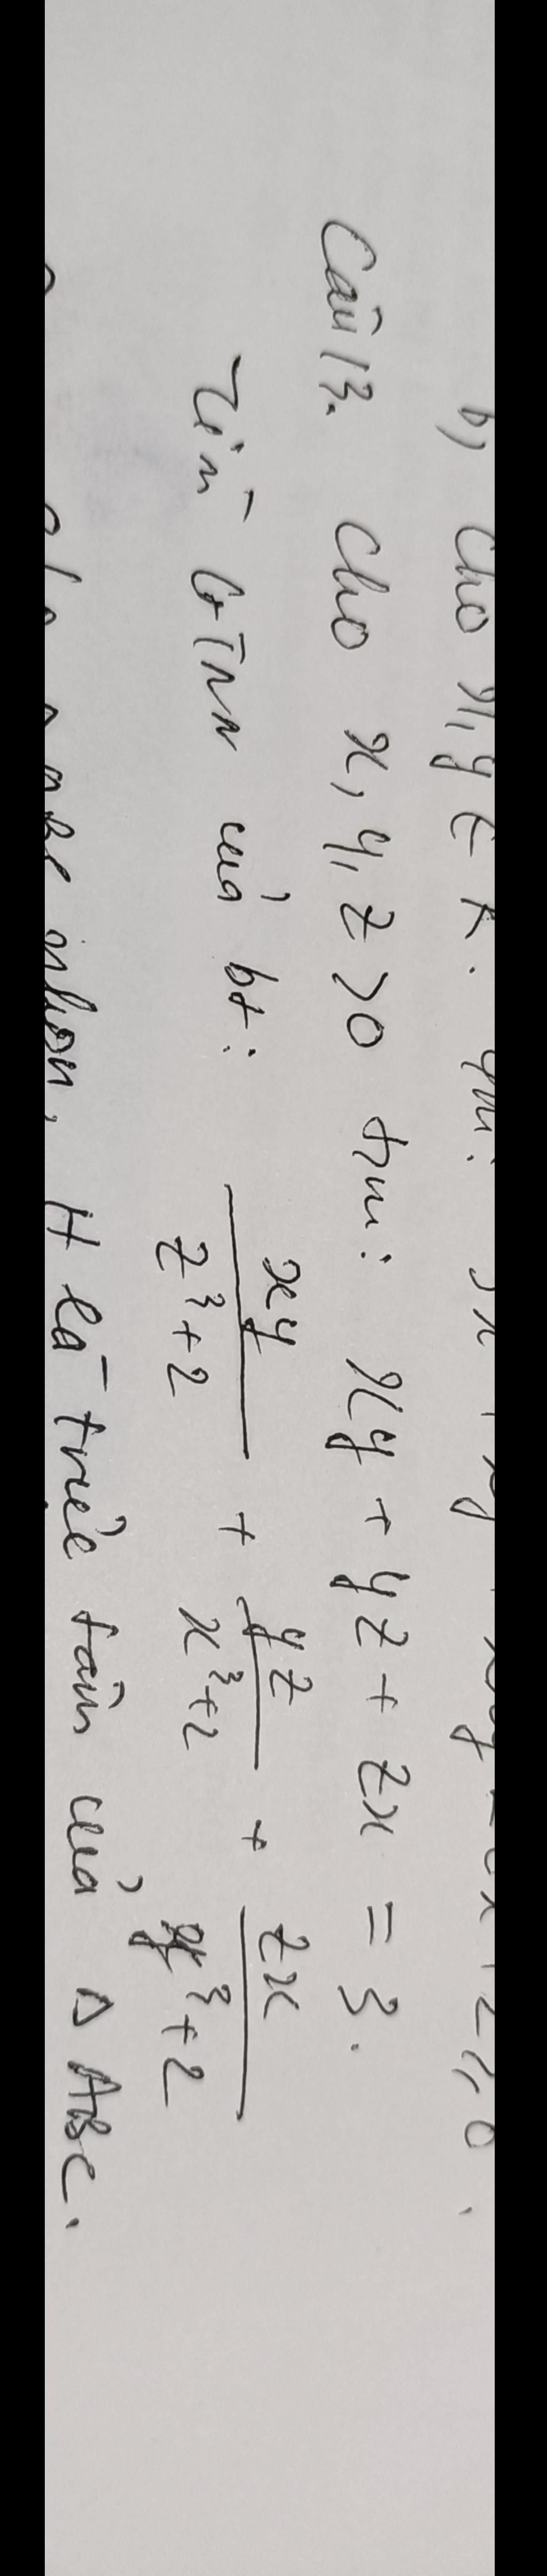 b) Cho x, y ∈ R.
Câu 13. Cho x, y, z > 0 tmđk: xy + yz + zx = 3.
Tìm GTNN của bt: \frac{xy}{z^3+2} + \frac{yz}{x^3+2} + \frac{zx}{y^3+2}
nhọn, H là trực tâm của Δ ABC.